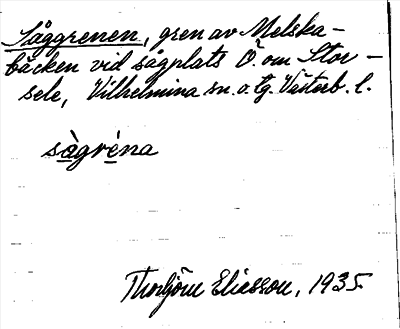 Såggrenen, gren av Melska-
bäcken vid sågplats Ö. om Stor-
sele, Vilhelmina sn. o. tg. Västerb. l.
sàgréna
Thorbjörn Eliasson, 1935.